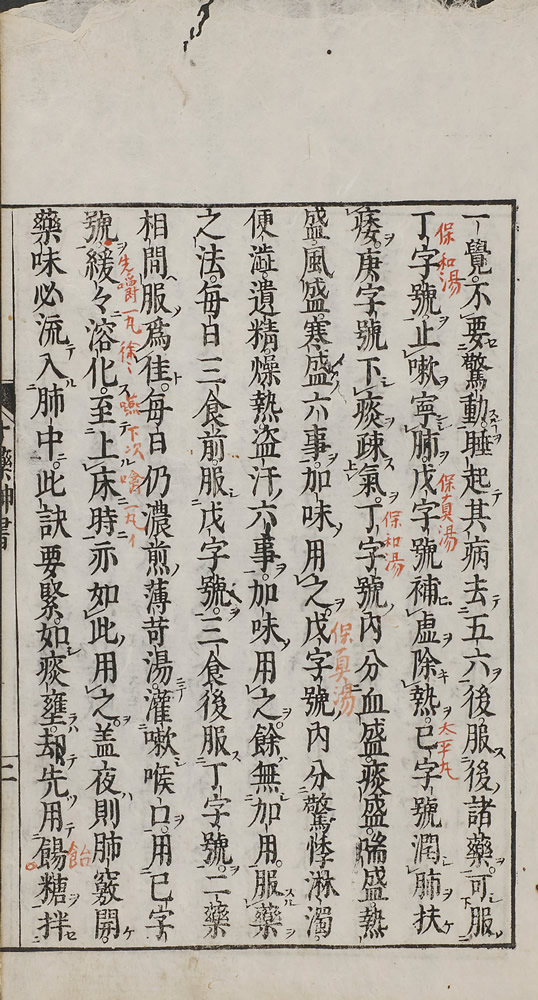 一覺不要驚動睡起其病去五六後服後諸藥可服
丁字號止嗽寧肺戊字號補虛除熱已字號潤肺扶
痿庚字號下痰疎氣丁字號內分血盛痰盛喘盛熱
盛風盛寒盛六事加味用之戊字號內分驚悸淋濁
便澁遺精燥熱盗汗六事加味用之餘無加用服藥
之法每日三食前服戊字號三食後服丁字號二藥
相間服爲佳每日仍濃煎薄苛湯灌嗽喉口用已字
號緩々溶化至上床時亦如此用之盖夜則肺竅開
藥味必流入肺中此訣要緊如痰壅却先用餳糖拌
保和湯
保真湯
太平丸
保和湯
保真湯
先嚼一丸徐々嚥下次嚼一丸
飴